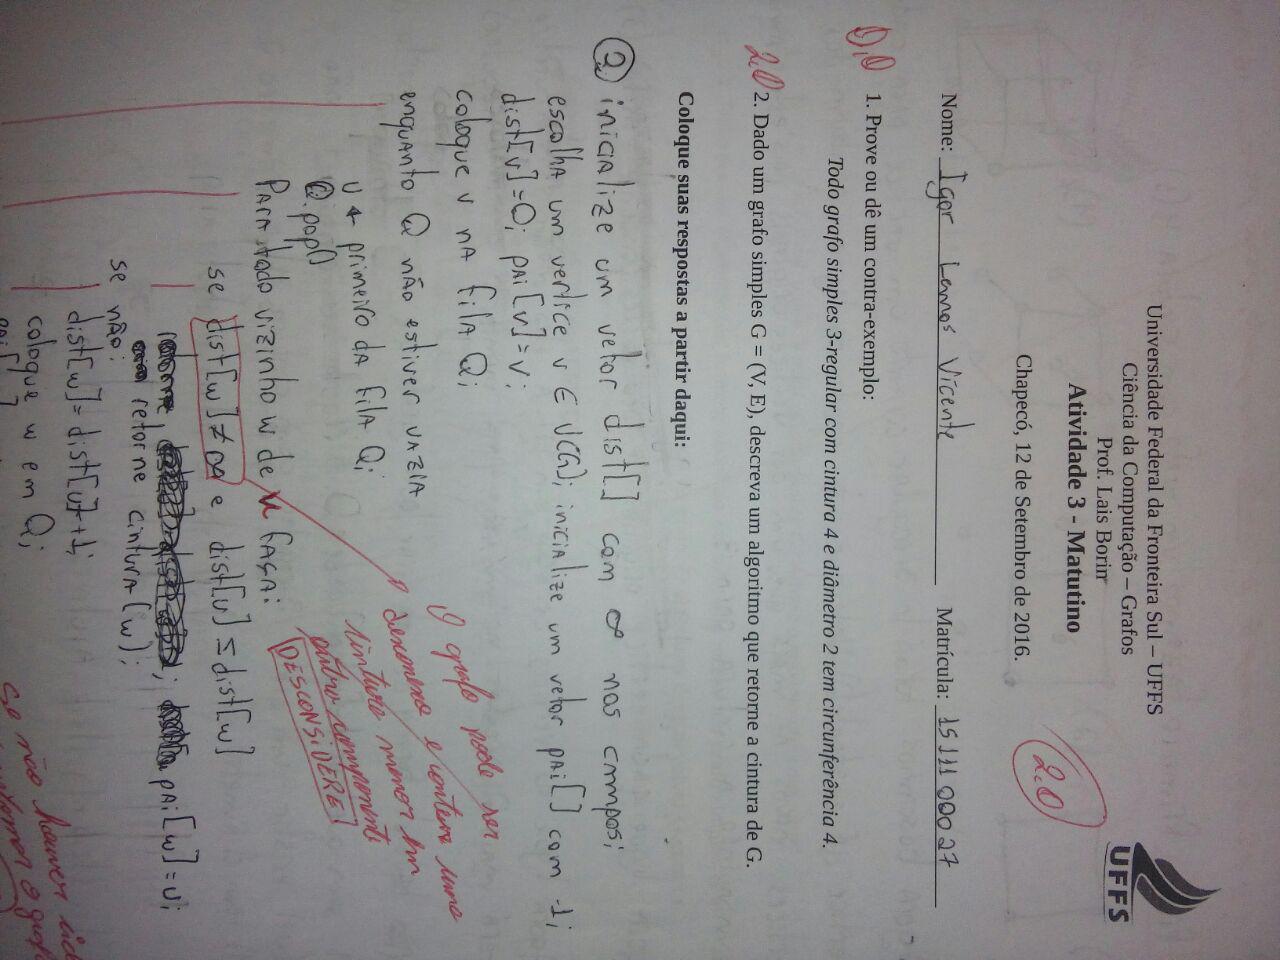 Universidade Federal da Fronteira Sul – UFFS
Ciência da Computação – Grafos
Prof. Lais Borin
Atividade 3 - Matutino
UFFS
2.0
Chapecó, 12 de Setembro de 2016.
Nome: Igor Lemos Vicente Matrícula: 1511100027
0,0
1. Prove ou dê um contra-exemplo:
Todo grafo simples 3-regular com cintura 4 e diâmetro 2 tem circunferência 4.
2.0
2. Dado um grafo simples G = (V, E), descreva um algoritmo que retorne a cintura de G.
Coloque suas respostas a partir daqui:
2 inicialize um vetor dist[] com ∞ nos campos;
escolha um vertice v ∈ V(G); inicialize um vetor pai[] com -1;
dist[v]=0; pai[v]=v;
coloque v na fila Q;
enquanto Q não estiver vazia
u ← primeiro da fila Q;
Q.pop()
Para todo vizinho w de u faça:
se dist[w] ≠ ∞ e dist[u] ≤ dist[w]
pai[w]=u;
retorne cintura(w);
se não:
dist[w]= dist[u]+1;
coloque w em Q;
pai[
O grafo pode ser
desconexo e conter uma
cintura menor em
outro componente
DESCONSIDERE
Se não houver